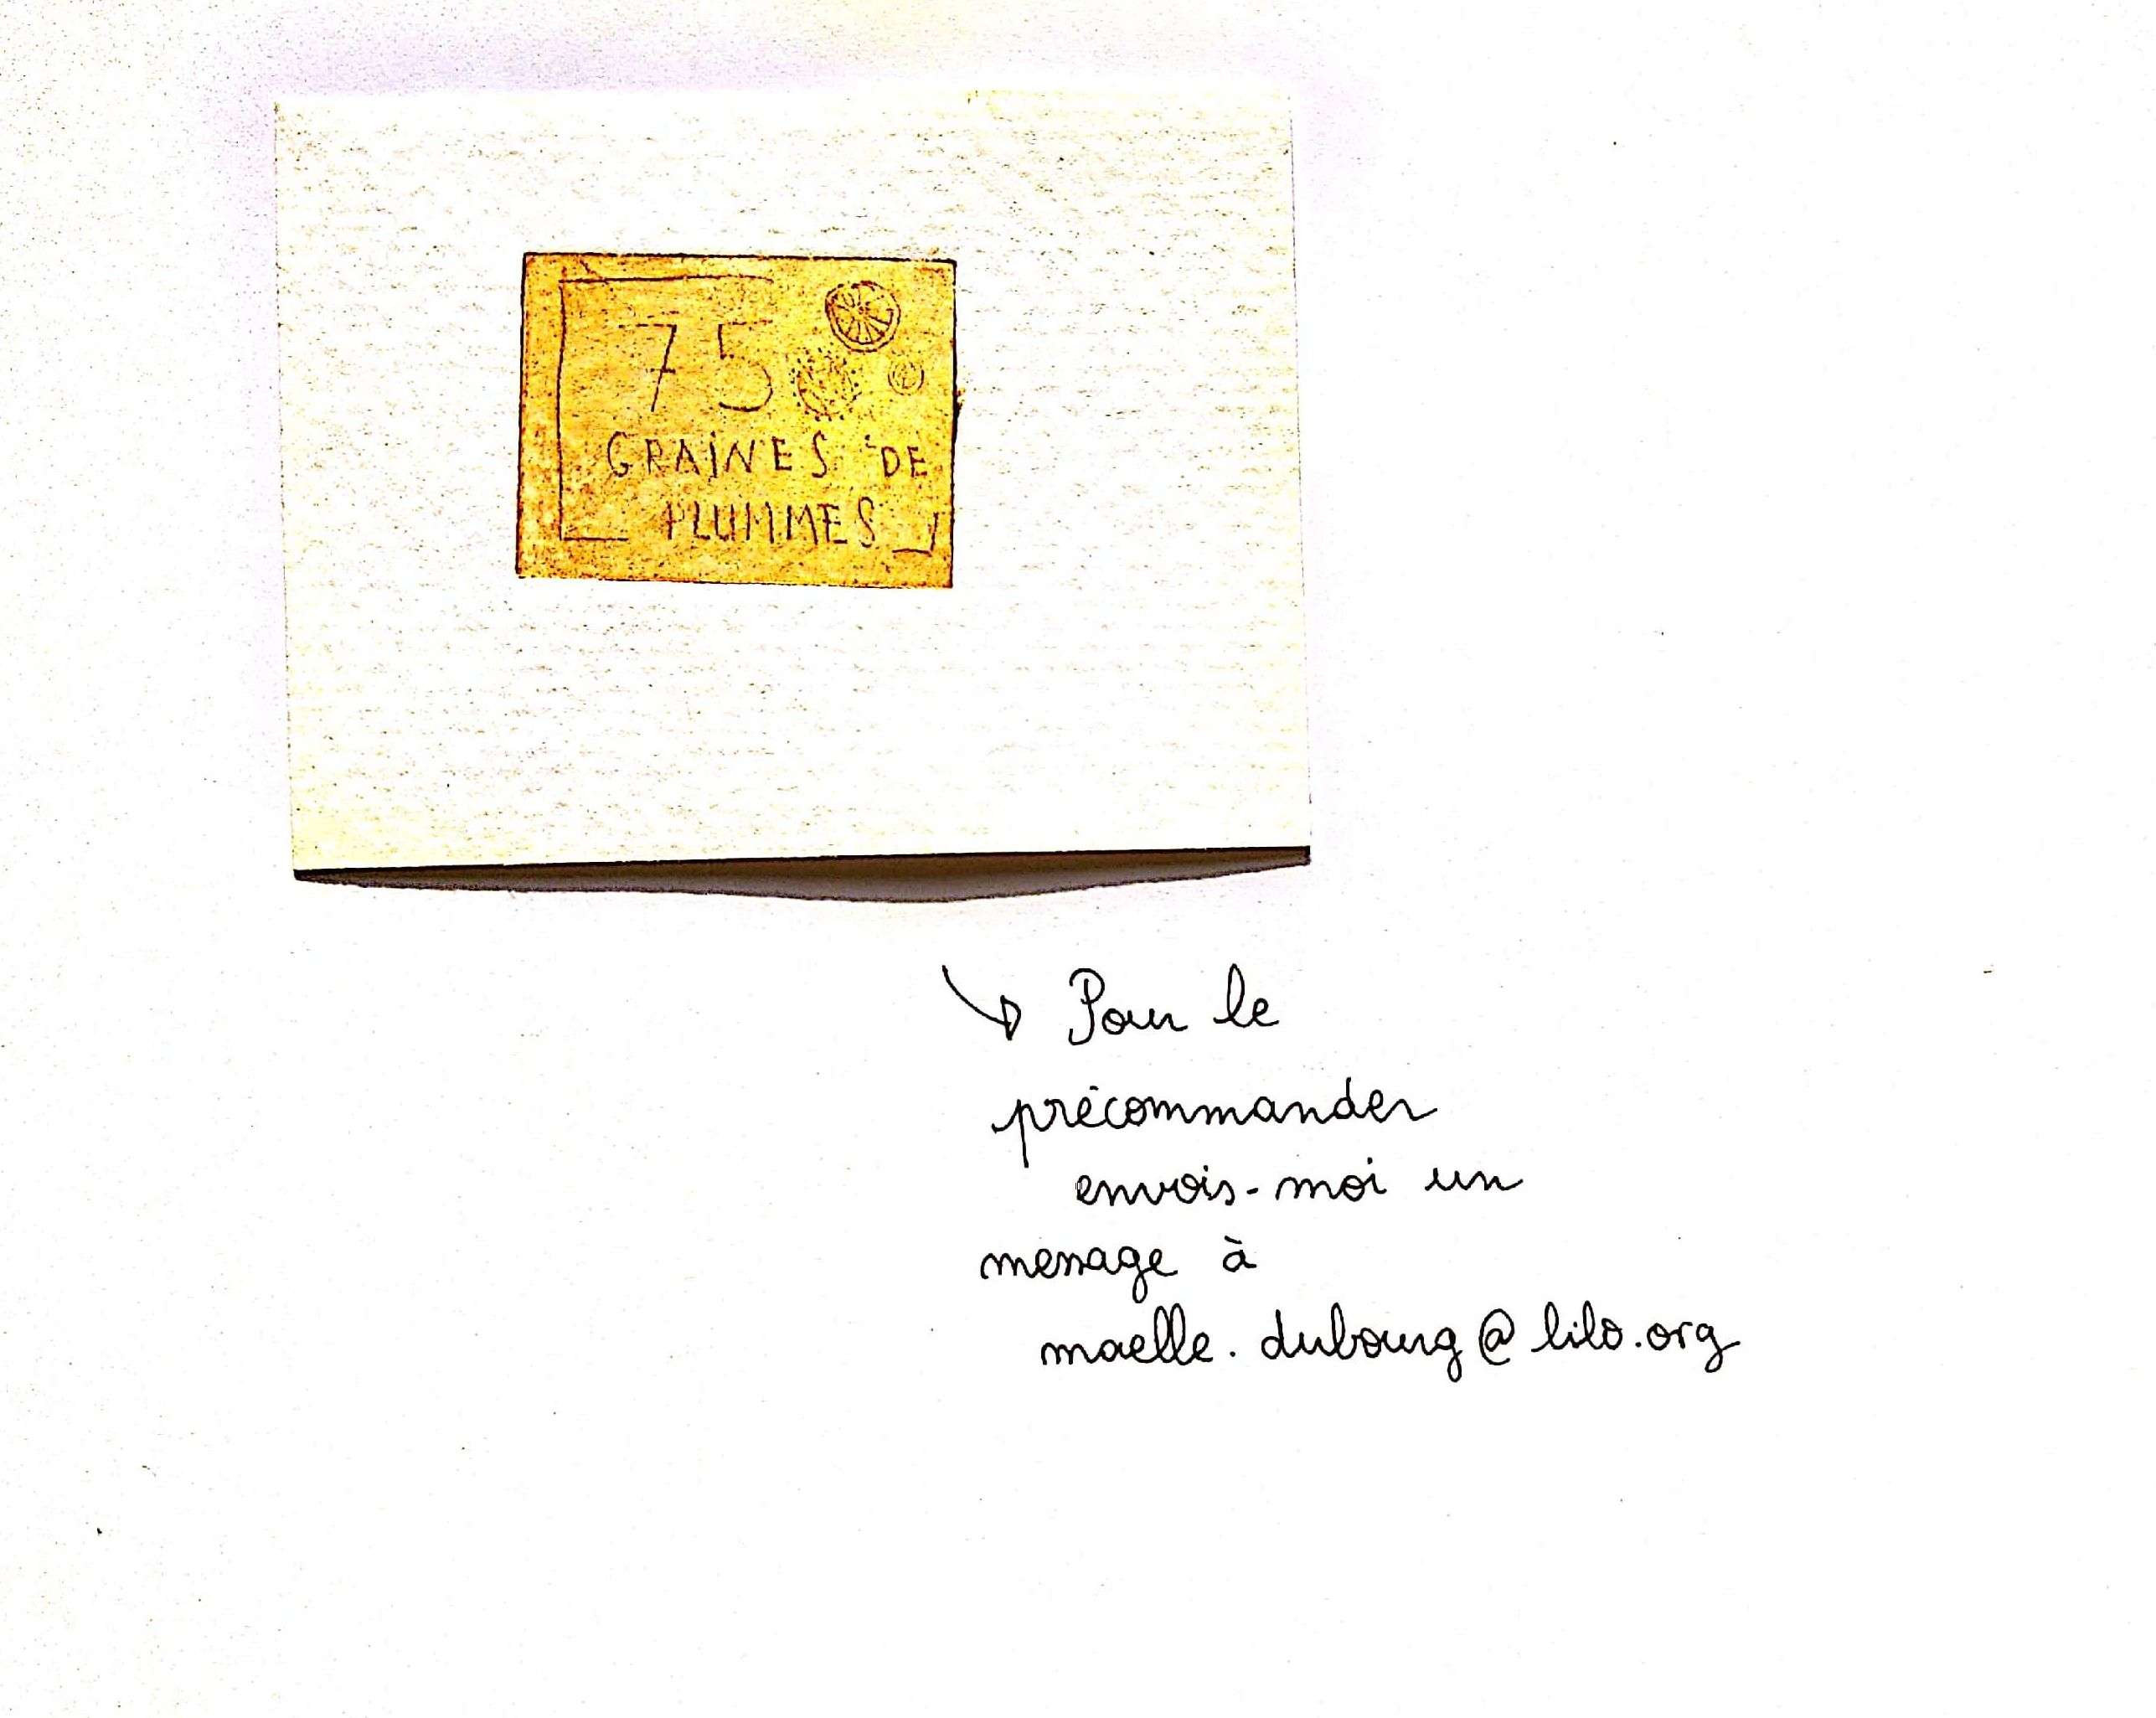 75
GRAINES DE
PLUMMES
Pour le
précommander
envois-moi un
message à
maelle.dubourg@lilo.org